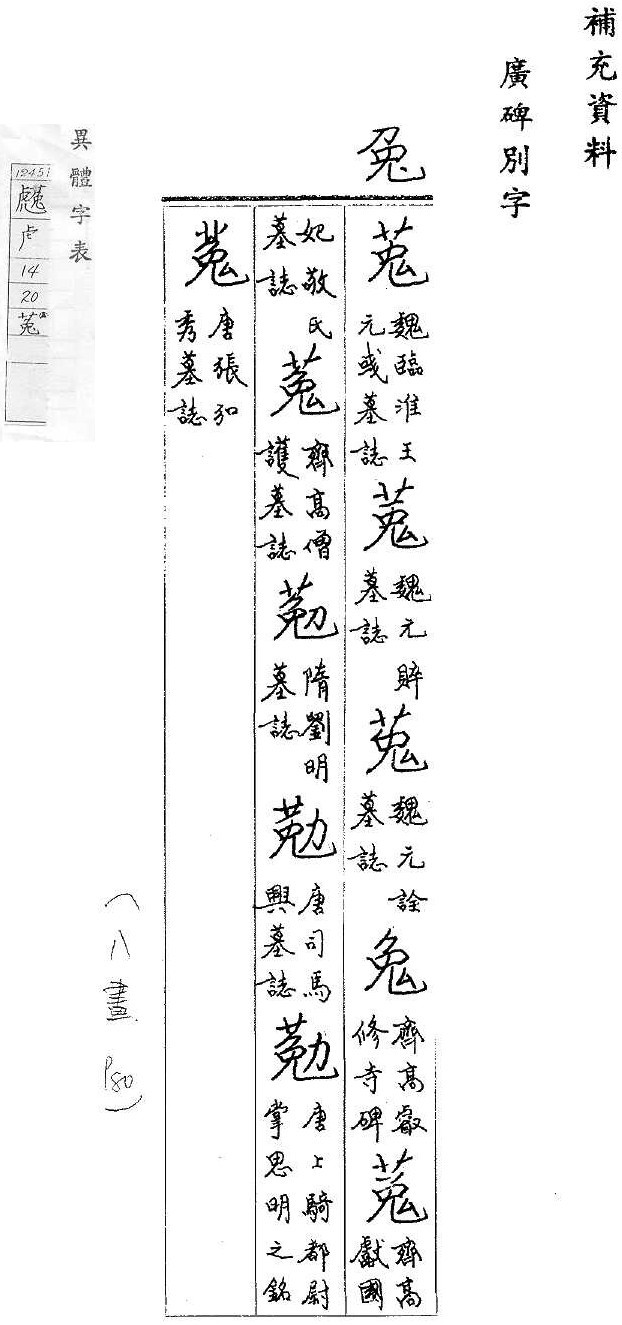 補充資料
廣碑別字
兔
菟 魏臨淮王元彧墓誌 菟 魏元賥墓誌 菟 魏元詮墓誌 兔 齊高叡修寺碑 菟 齊高獻國
妃敬氏墓誌 菟 齊高僧護墓誌 隋劉明墓誌 唐司馬興墓誌 唐上騎都尉掌思明之銘
唐張弘秀墓誌
(八畫 P80)
異體字表
12451
虍
14
20
菟